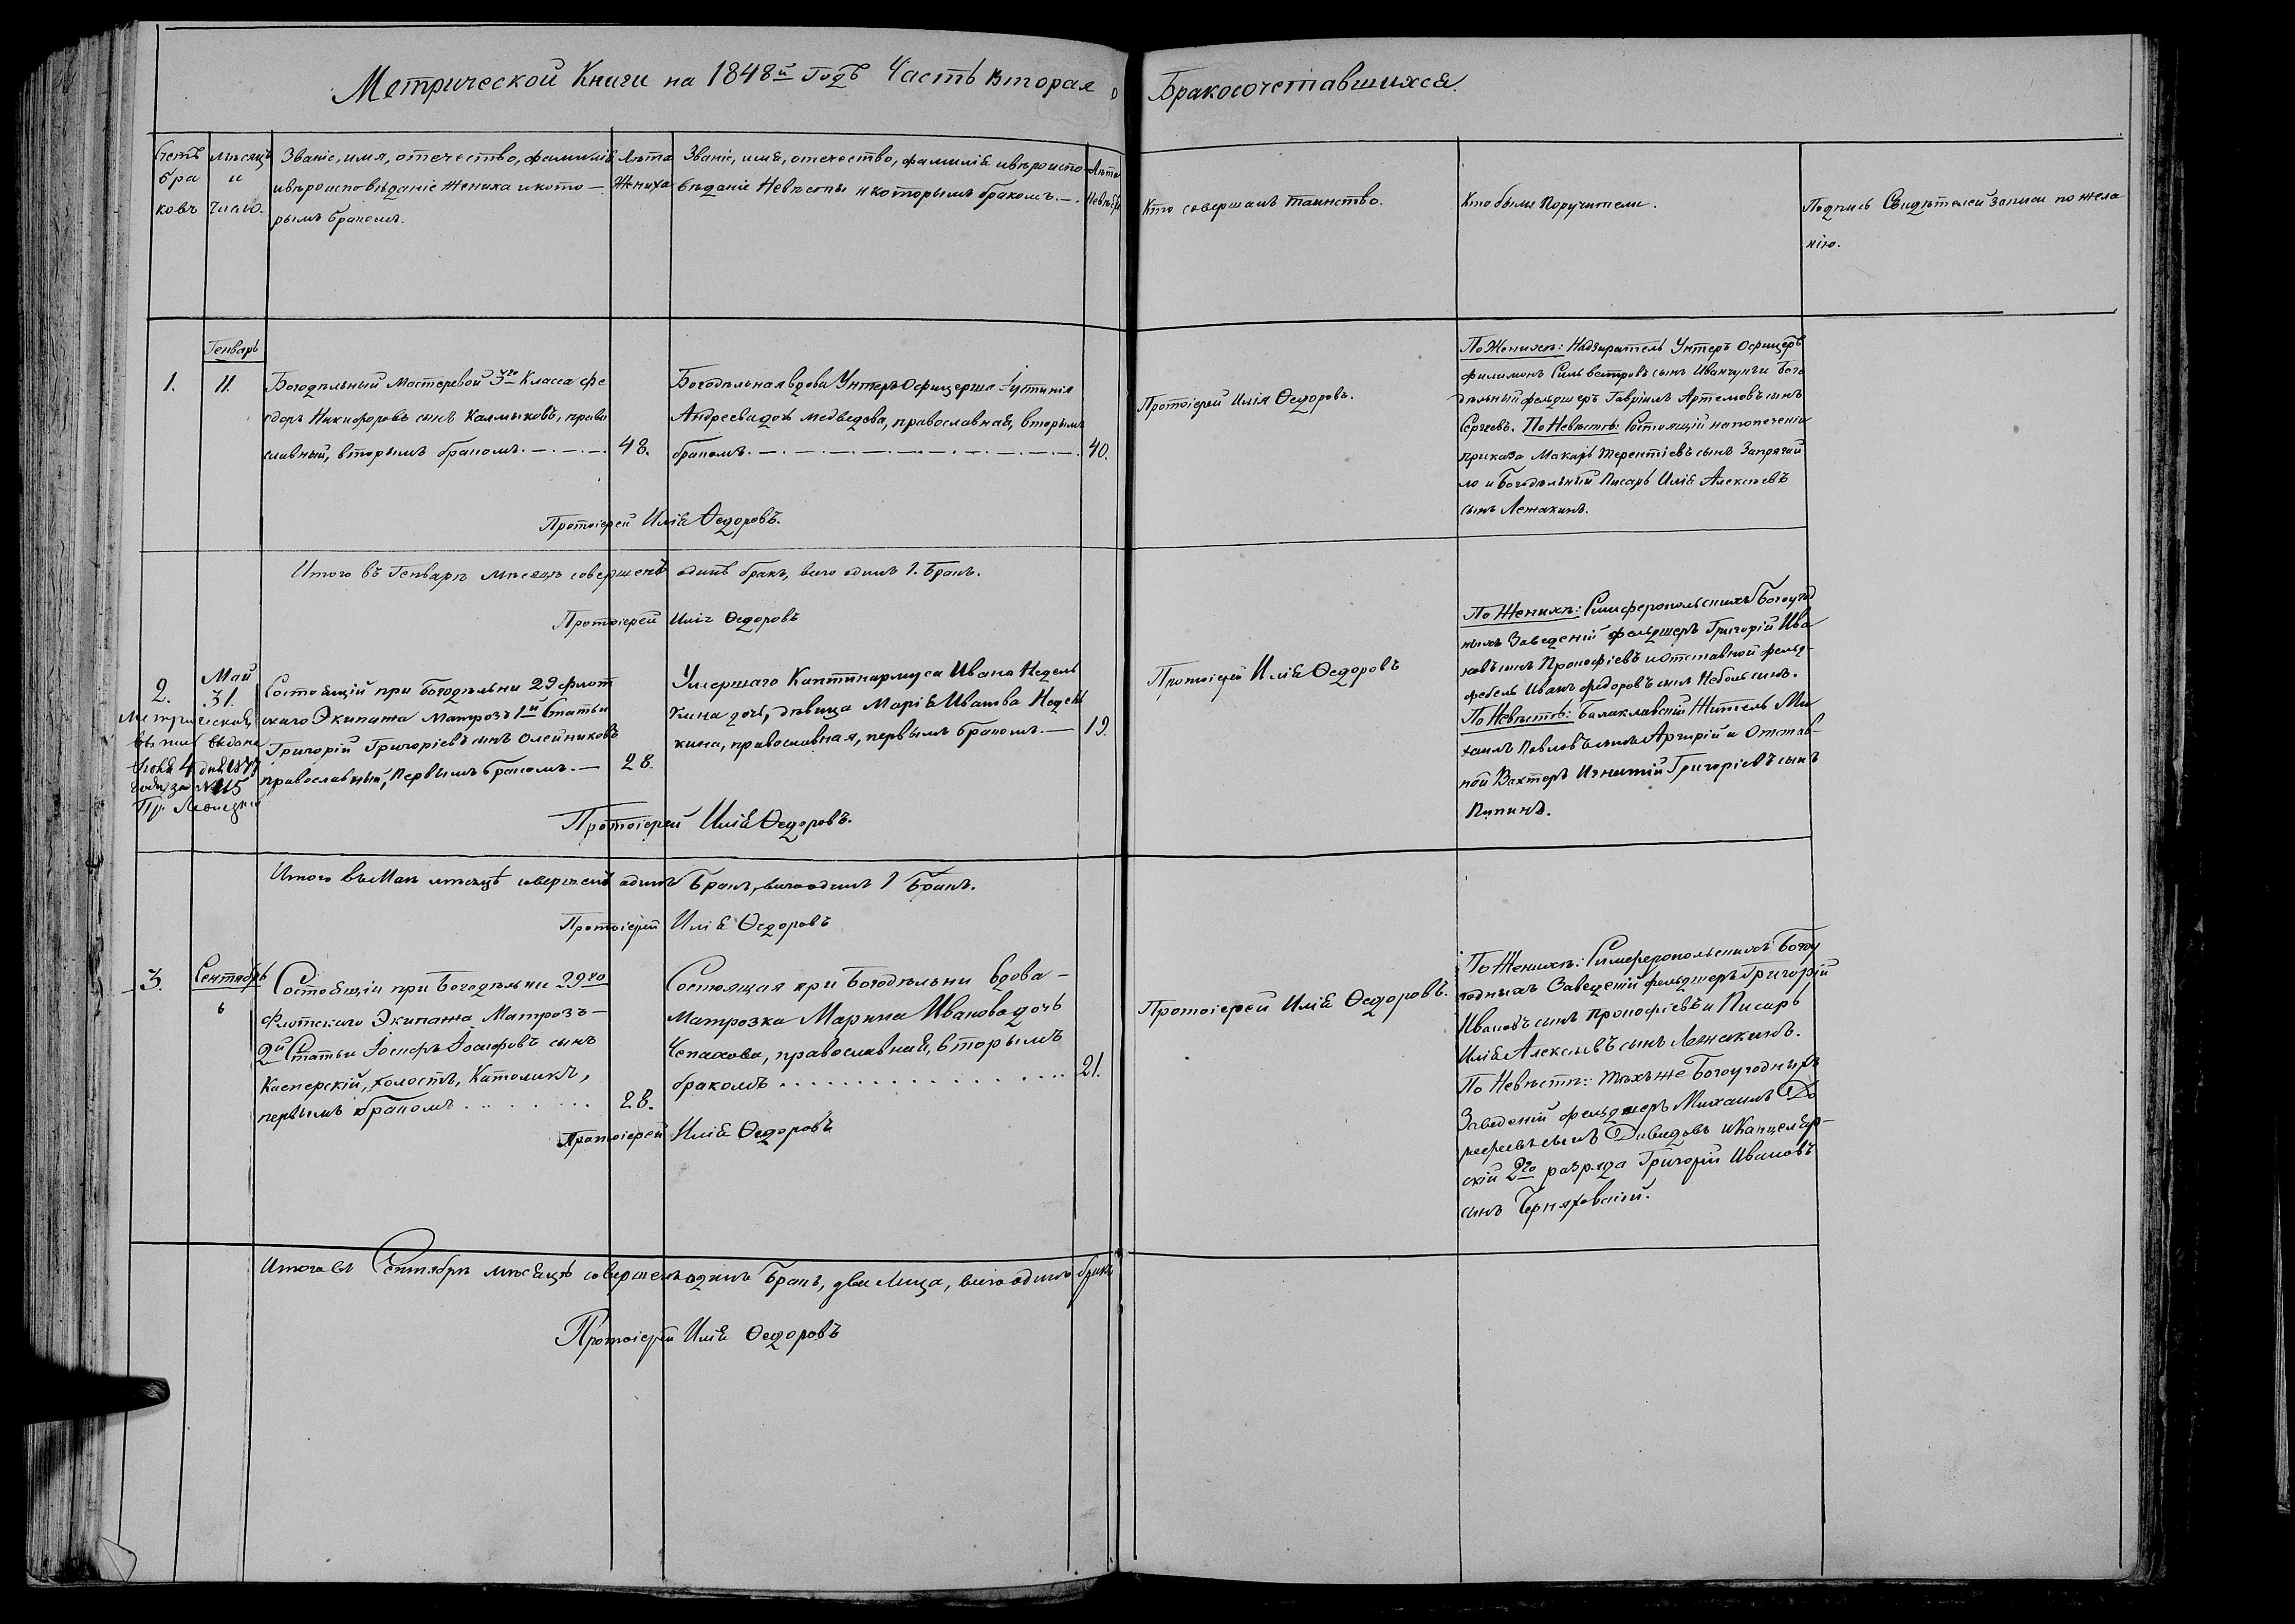 Метрической Книги на 1848й Годъ Часть Вторая о Бракосочетавшихся.
Счетъ браковъ
Мѣсяцъ и число.
Званіе, имя, отечество, фамилія
ивѣроисповѣданіе Жениха икото-
рымъ бракомъ.
Лѣта
Жениха
Званіе, имя, отечество, фамилія ивѣроиспо-
вѣданіе Невѣсты и которымъ бракомъ.
Лѣта
Невѣсты
Кто совершалъ таинство.
Кто были Поручители.
Подпись Свидѣтелей записи по жела
нію.
1.
Генварь
11.
Богодѣльный мастеровой 3го Класса Фе
одоръ Никифоровъ сынъ Калмыковъ, право
славный, вторымъ бракомъ.
48.
Богодѣльная вдова Унтеръ Офицерша Іустинія
Андреева дочь Медведева, православная, вторымъ
бракомъ.
40.
Протоіерей Илія Ѳедоровъ.
По Женихѣ: Надзиратель Унтеръ Офицеръ
Филимонъ Сильвестровъ сынъ Иванчунъ и Бого
дѣльный фельдшеръ Гавріилъ Артемовъ сынъ
Сергѣевъ. По Невѣстѣ: Состоящій на попеченіи
приказа Макаръ Терентіевъ сынъ Запрягай
ло и Богодѣльный Писарь Илія Алексѣевъ
сынъ Лежакинъ.
Протоіерей Илія Ѳедоровъ.
Итого въ Генварѣ мѣсяцѣ совершенъ одинъ бракъ, всего одинъ 1. Бракъ.
Протоіерей Илія Ѳедоровъ
2.
Май
31.
Метрической
выпись выдана
Іюня 4 дня 1877
года за № 115
Состоящій при Богодѣльни 29 флот
скаго Экипажа Матрозъ 1й Статьи
Григорій Григоріевъ сынъ Олейниковъ
православный, Первымъ бракомъ.
28.
Умершаго Каптинармуса Ивана Недель
кина дочь, дѣвица Марія Иванова Недель
кина, православная, первымъ бракомъ.
19.
Протоіерей Илія Ѳедоровъ
По Женихѣ: Симферопольскихъ Богоугод
ныхъ Заведеній фельдшеръ Григорій Ива
новъ сынъ Прокофіевъ и Отставной фельд-
фебель Иванъ Федоровъ сынъ Небольсинъ.
По Невѣстѣ: Балаклавскій Житель Ми
хаилъ Павловъ сынъ Аргирій и Отстав-
ной Вахтеръ Игнатій Григоріевъ сынъ
Пупинъ.
Протоіерей Илія Ѳедоровъ.
Итого въ Маѣ мѣсяцѣ совершенъ одинъ Бракъ, всего одинъ 1 Бракъ.
Протоіерей Илія Ѳедоровъ
3.
Сентябрь
6
Состоящій при Богодѣльни 29го
Флотскаго Экипажа Матрозъ-
2й Статьи Іосифъ Іосифовъ сынъ
Касперскій, холостъ, Католикъ,
первымъ бракомъ
28.
Состоящая при Богодѣльни вдова-
Матрозка Марина Иванова дочь
Чепахова, православная, вторымъ
бракомъ
21.
Протоіерей Илія Ѳедоровъ.
По Женихѣ: Симферопольскихъ Богоу
годныхъ Заведеній фельдшеръ Григорій
Ивановъ сынъ Прокофіевъ и Писарь
Илія Алексѣевъ сынъ Лежакинъ.
По Невѣстѣ: тѣхъже Богоугодныхъ
Заведеній фельдшеръ Михаилъ До
рофеевъ сынъ Давидовъ и Канцеляр-
скій 2го разряда Григорій Ивановъ
сынъ Черняховскій.
Протоіерей Илія Ѳедоровъ
Итого въ Сентябрѣ мѣсяцѣ совершенъ одинъ Бракъ, два Лица, всего одинъ бракъ
Протоіерей Илія Ѳедоровъ